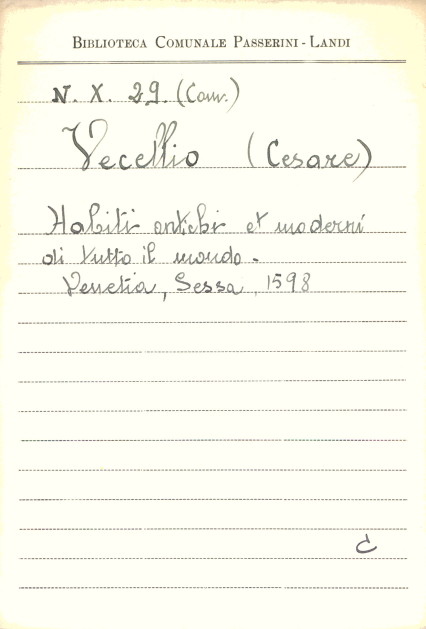 BIBLIOTECA COMUNALE PASSERINI - LANDI
N. X. 29. (Com.)
Vecellio (Cesare)
Habiti antichi et moderni
di tutto il mondo -
Venetia, Sessa, 1598
C